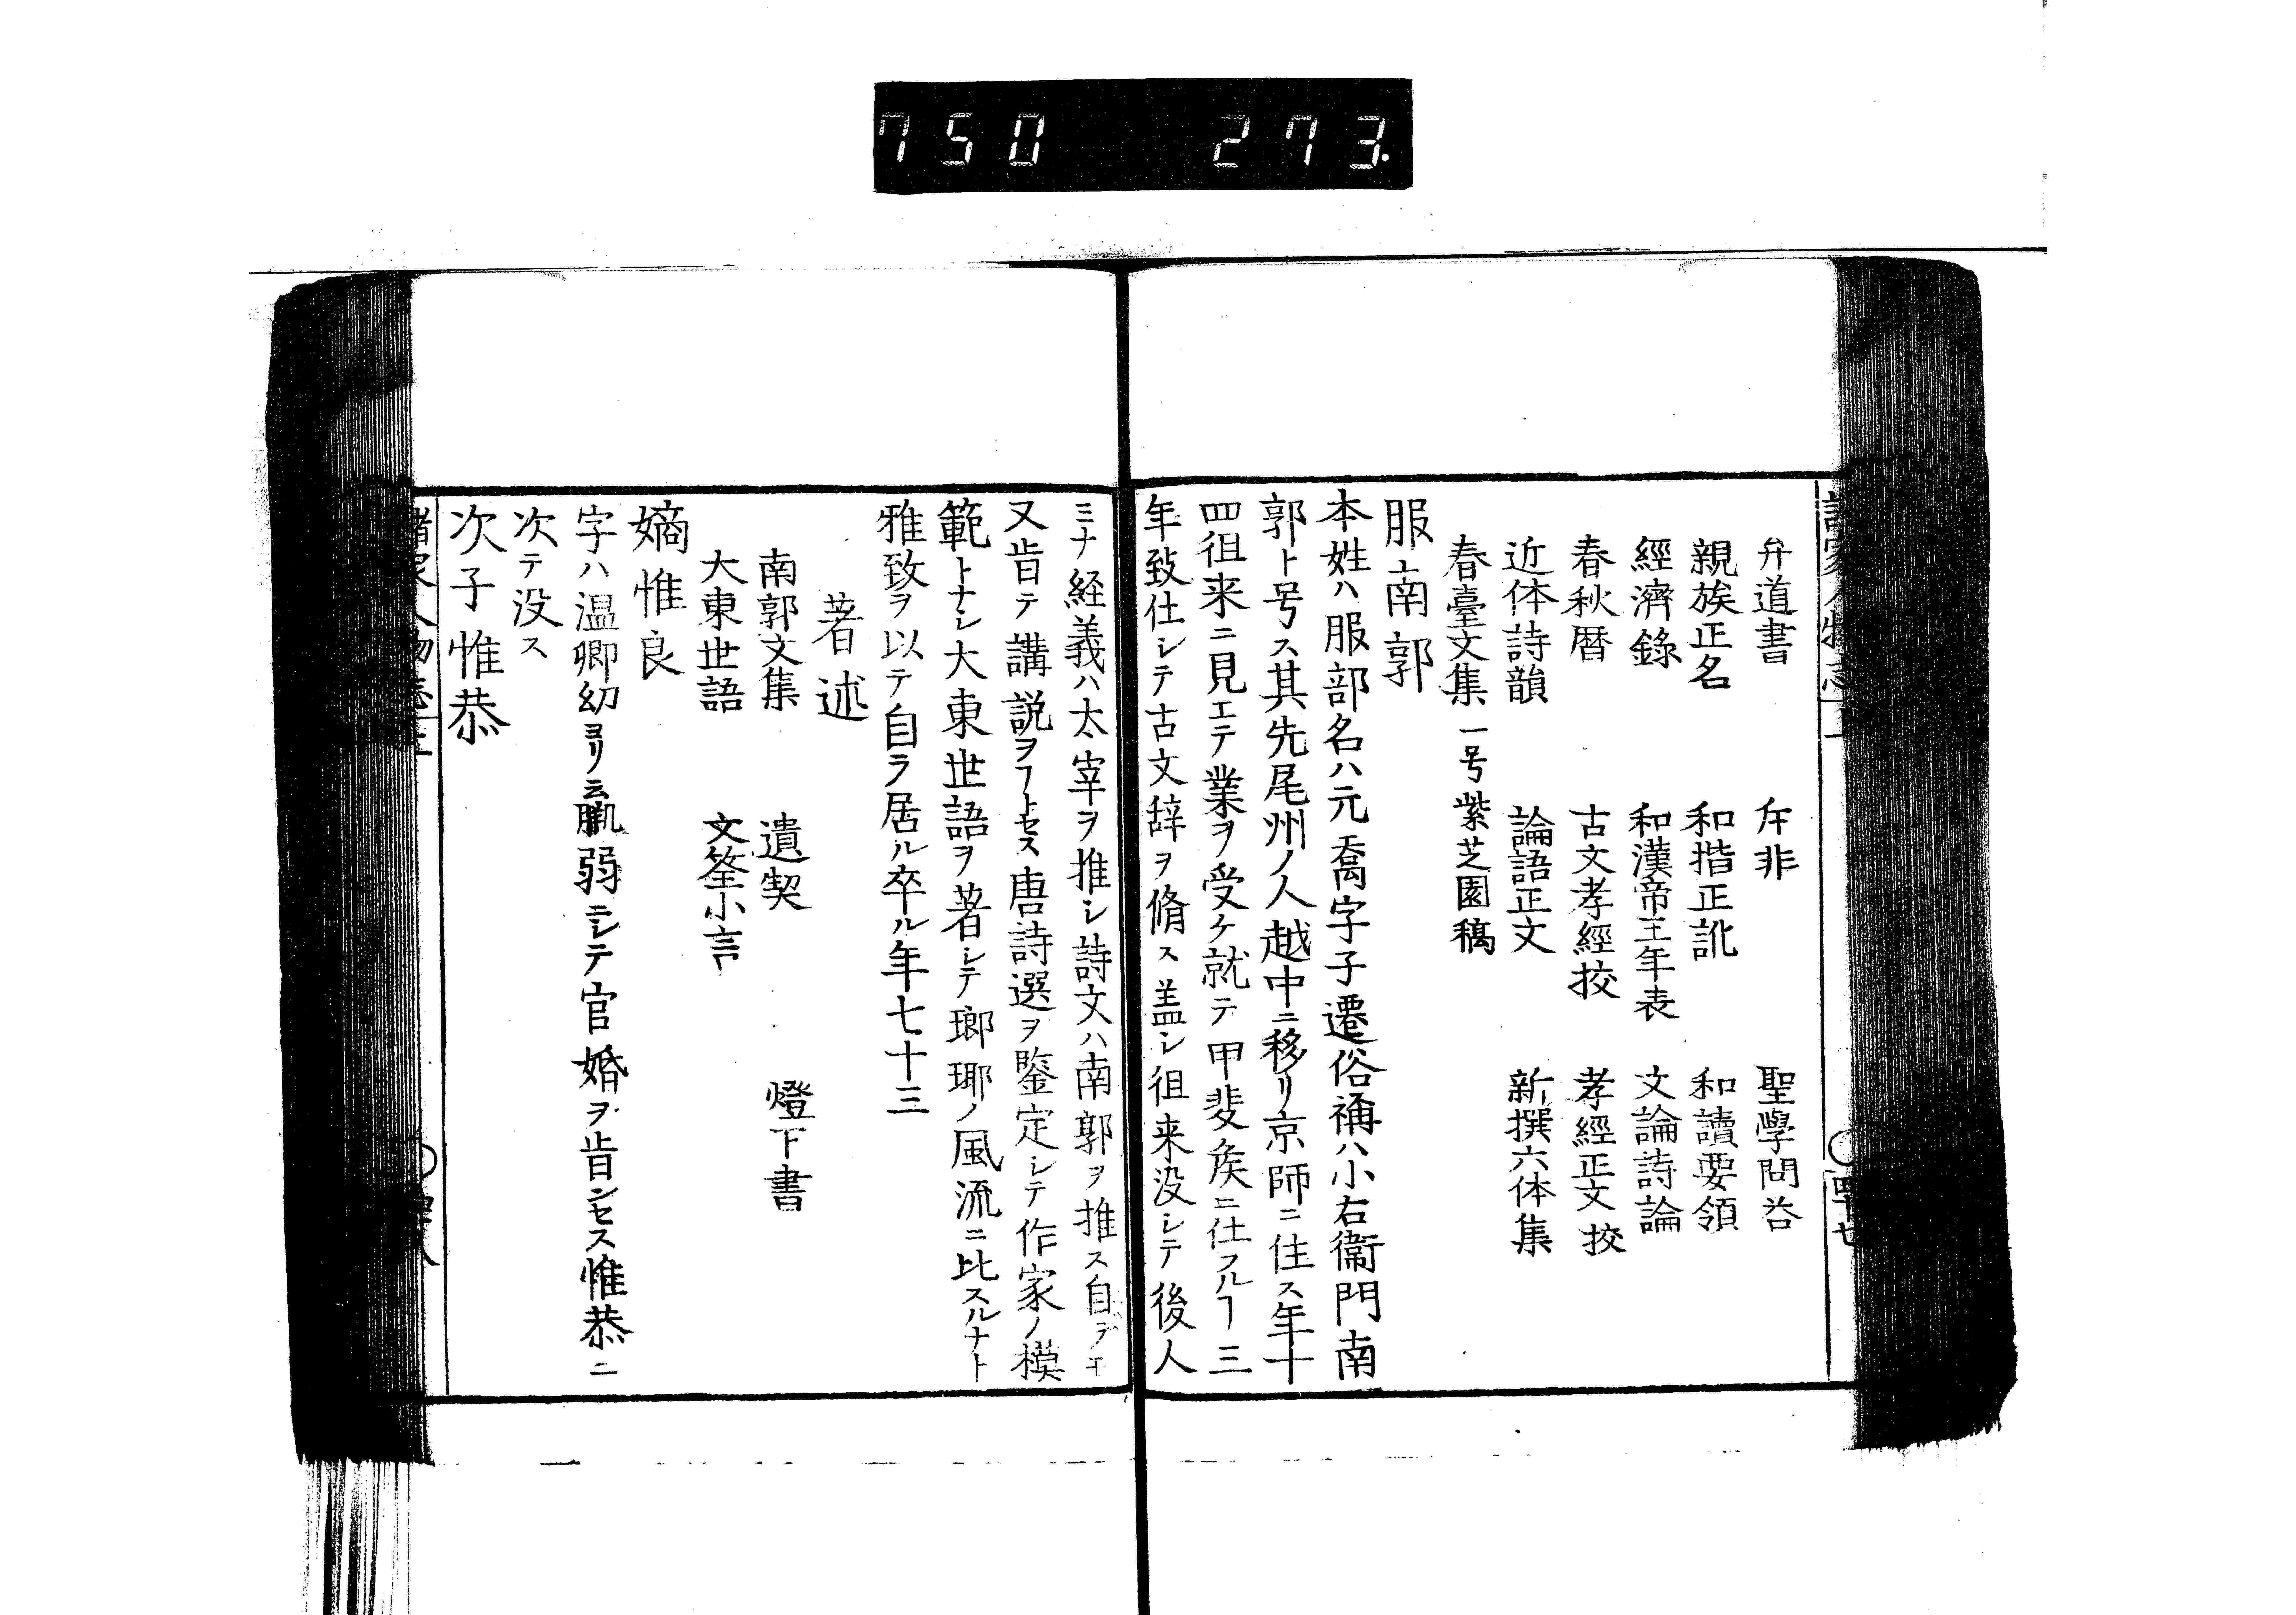 750 273.
弁道書 斥非 聖學問答
親族正名 和揩正訛 和讀要領
經濟錄 和漢帝王年表 文論詩論
春秋暦 古文孝經挍 孝經正文挍
近体詩韻 論語正文 新撰六体集
春臺文集 一号紫芝園稿
服南郭
本姓ハ服部名ハ元喬字子遷俗称ハ小右衞門南
郭ト号ス其先尾州ノ人越中ニ移リ京師ニ住ス年十
四徂来ニ見エテ業ヲ受ケ就テ甲斐矦ニ仕フルヿ三
年致仕シテ古文辞ヲ脩ス盖シ徂来没シテ後人
ミナ経義ハ太宰ヲ推シ詩文ハ南郭ヲ推ス自
又肯テ講説ヲヿトセス唐詩選ヲ鑒定シテ作家ノ模
範トナシ大東世語ヲ著シテ瑯琊ノ風流ニ比スルナト
雅致ヲ以テ自ラ居ル卒ル年七十三
著述
南郭文集 遺契 燈下書
大東世語 文筌小言
嫡惟良
字ハ温卿幼ヨリ羸弱ニシテ官婚ヲ肯ンセス惟恭ニ
次テ没ス
次子惟恭